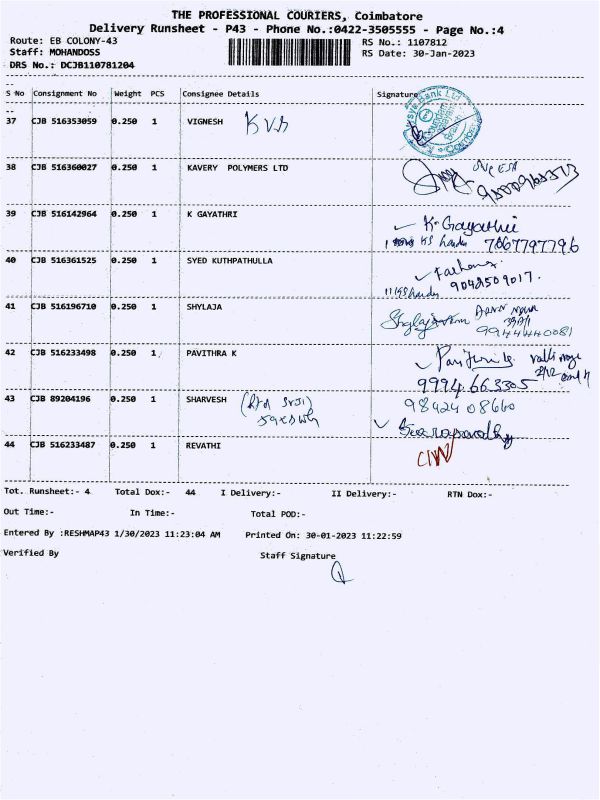 THE PROFESSIONAL COURIERS, Coimbatore
Delivery Runsheet - P43 - Phone No.:0422-3505555 - Page No.:4
Route: EB COLONY-43 RS No.: 1107812
Staff: MOHANDOSS RS Date: 30-Jan-2023
DRS No.: DCJB110781204
S No Consignment No Weight PCS Consignee Details Signature
37 CJB 516353059 0.250 1 VIGNESH KVB
38 CJB 516360027 0.250 1 KAVERY POLYMERS LTD
39 CJB 516142964 0.250 1 K GAYATHRI K. Gayathri
7667797796
40 CJB 516361525 0.250 1 SYED KUTHPATHULLA Farhana
9042509017.
41 CJB 516196710 0.250 1 SHYLAJA
9944440081
42 CJB 516233498 0.250 1 PAVITHRA K
9994663305
43 CJB 89204196 0.250 1 SHARVESH 9842408660
44 CJB 516233487 0.250 1 REVATHI
Tot. Runsheet:- 4 Total Dox:- 44 I Delivery:- II Delivery:- RTN Dox:-
Out Time:- In Time:- Total POD:-
Entered By :RESHMAP43 1/30/2023 11:23:04 AM Printed On: 30-01-2023 11:22:59
Verified By Staff Signature